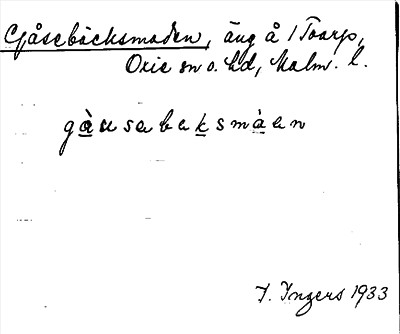 Gåsebäcksmaden, äng å 1 Toarp,
Oxie sn o. hd, Malm. l.
gàusabaksmàen
I. Ingers 1933